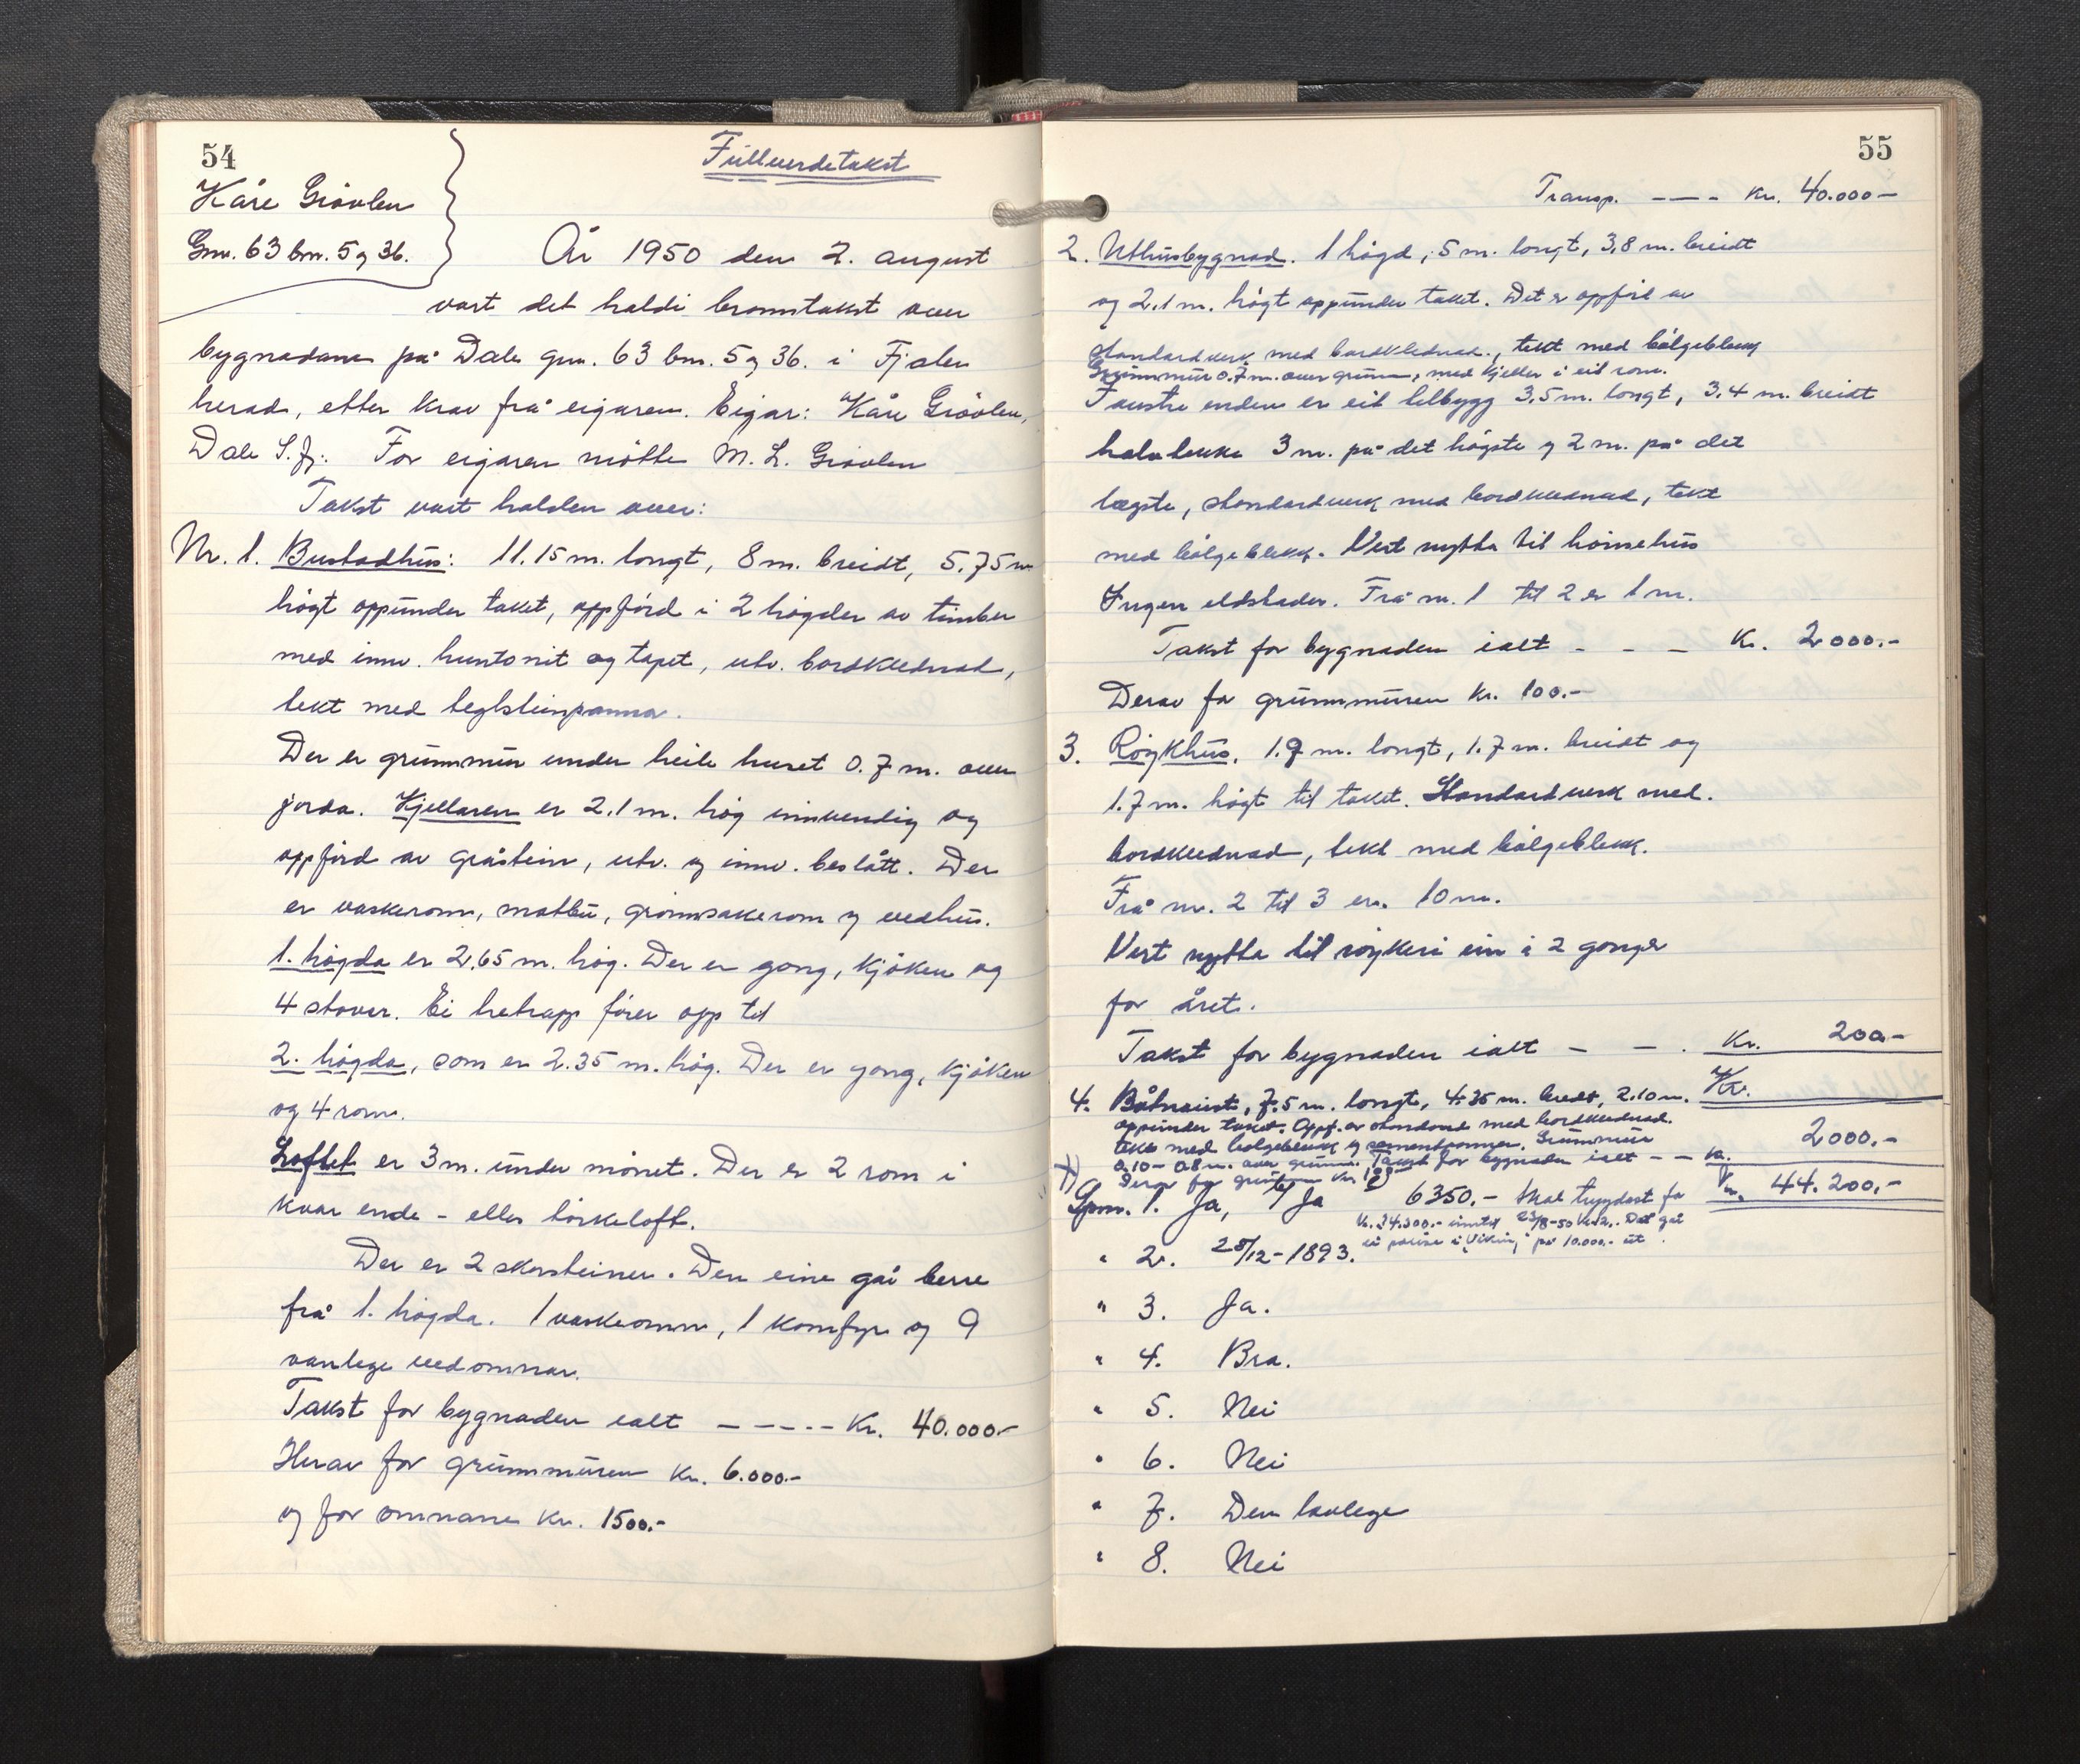 54
Fullverdetakst
Kåre Grövlen
Gnr. 63 bnr. 5 og 36.
År 1950 den 2. august
vart det haldi branntakst over
bygnadane på Dale gnr. 63 bnr. 5 og 36. i Fjaler
herad, etter krav frå eigaren. Eigar: Kåre Grövlen,
Dale S.fj. For eigaren mötte M. L. Grövlen
Takst vart halden over:
Nr. 1. Bustadhus: 11.15 m. langt, 8 m. breidt, 5.75 m
högt oppunder taket, oppförd i 2 högder av timber
med innv. huntonit og tapet, utv. bordklednad,
tekt med teglsteinpanner.
Der er grunnmur under heile huset 0.7 m. over
jorda. Kjellaren er 2.1 m. hög innvendig og
oppförd av gråstein, utv. og innv. beslått. Der
er vaskerom, matbu, grönnsakerom og vedhus.
1. högda er 2,65 m. hög. Der er gang, kjöken og
4 stover. Ei tretrapp förer opp til
2. högda, som er 2.35 m. hög. Der er gang, kjöken
og 4 rom.
Loftet er 3 m. under mönet. Der er 2 rom i
kvar ende - elles törkeloft.
Der er 2 skorsteiner. Den eine går berre
frå 1. högda. 1 vaskeomn, 1 komfyr og 9
vanlege vedomnar.
Takst for bygnaden ialt - - - - - Kr. 40.000.-
Herav for grunnmuren kr. 6.000.-
og for omnane kr. 1500.-
55
Transp. - - - - Kr. 40.000-
2. Uthusbygnad. 1 högd, 5 m. langt, 3,8 m. breidt
og 2.1 m. högt oppunder taket. Det er oppfört av
standardverk med bordklednad., tekt med bölgeblekk
Grunnmur 0.7 m. over grunn, med kjeller i eit rom.
I austre enden er eit tilbygg 3.5 m. langt, 3.4 m. breidt
halvtekke 3 m. på det högste og 2 m. på det
lægste, standardverk med bordklednad, tekt
med bölgeblekk. Vert nytta til hönsehus
Ingen eldstader. Frå nr. 1 til 2 er 1 m.
Takst for bygnaden ialt - - - Kr. 2000.-
Derav for grunnmuren kr. 100.-
3. Röykhus. 1.9 m. langt, 1.7 m. breidt og
1.7 m. högt til taket. Standardverk med.
bordklednad, tekt med bölgeblekk.
Frå nr. 2 til 3 er. 10 m.
Vert nytta til röykeri ein à 2 gonger
for året.
Takst for bygnaden ialt - - . Kr. 200.-
Kr.
4. Båtnaust, 7.5 m. langt, 4.35 m. bredt, 2.10 m.
oppunder taket. Oppf. av standard med bordklednad.
tekt med bölgeblekk og sementpanner. Grunnmur
0.10 - 0.8 m. over grunn. Takst for bygnaden ialt - - kr. 2000.-
Derav for grunnm kr. 100
Kr. 44.200.-
Spm. 1. Ja, Ja 6350.- Skal trygdast for
kr. 34.200.- inntil 23/8-50 Det går
ei polise i "Viking" på 10.000.- ut.
" 2. 28/12-1893.
" 3. Ja.
" 4. Bra.
" 5. Nei
" 6. Nei
" 7. Den lovlege
" 8. Nei